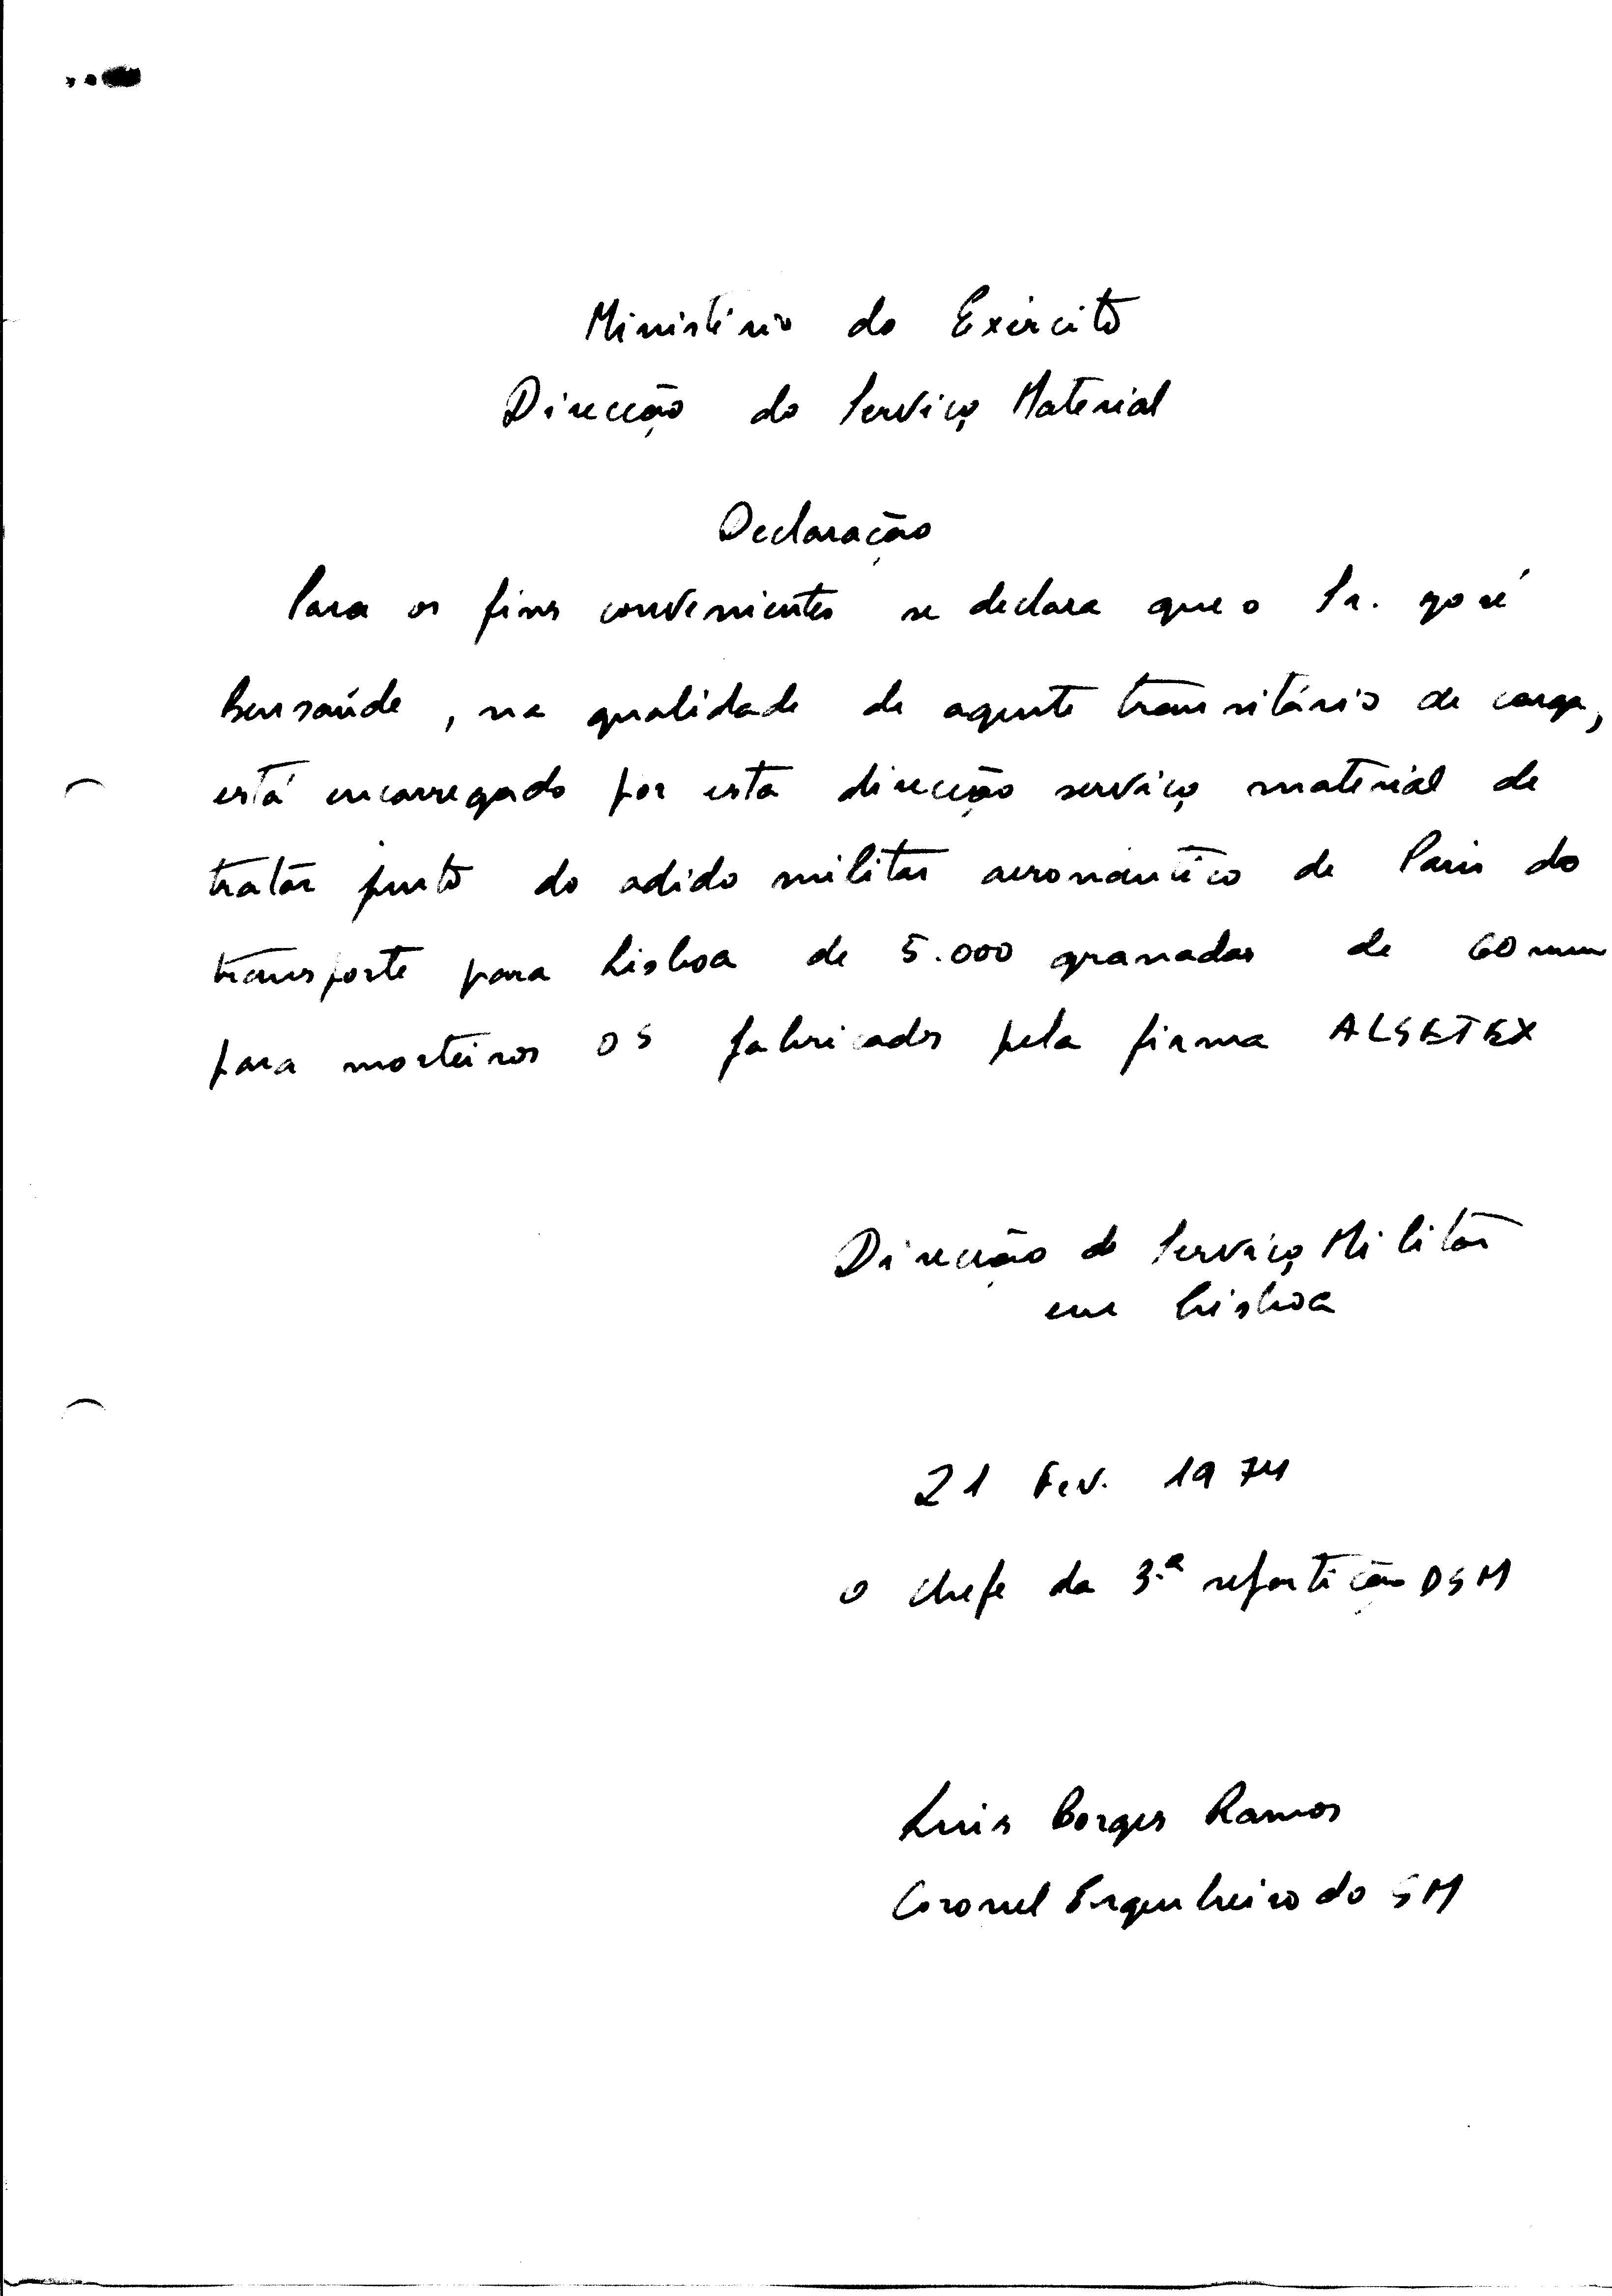 Ministério do Exército
Direcção do Serviço Material
Declaração
Para os fins convenientes se declara que o Sr. José
Bensaúde, na qualidade de agente transitário de carga,
está encarregado por esta direcção serviço material de
tratar junto do adido militar aeronáutico de Paris do
transporte para Lisboa de 5.000 granadas de 60 mm
para morteiros OS fabricados pela firma ALSETEX
Direcção do Serviço Militar
em Lisboa
21 Fev. 1974
O chefe da 3.ª repartição DSM
Luis Borges Ramos
Coronel Engenheiro do SM